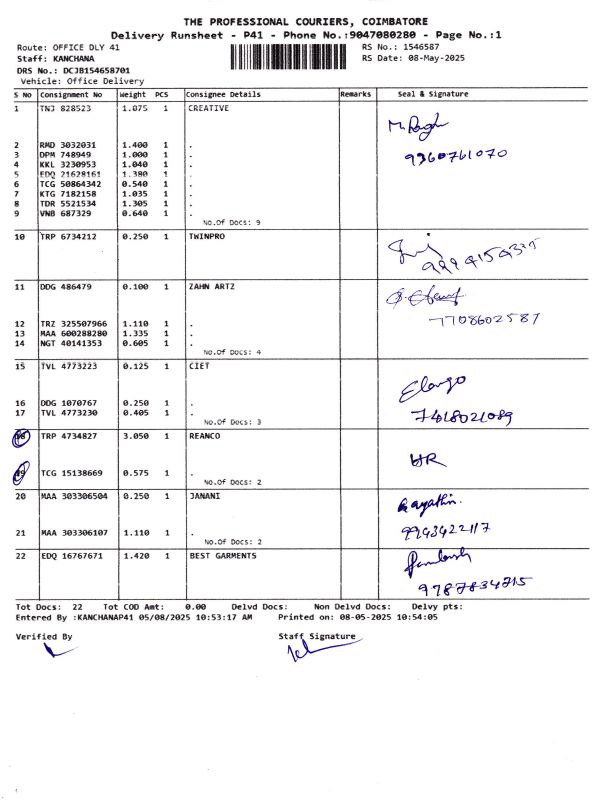 THE PROFESSIONAL COURIERS, COIMBATORE
Delivery Runsheet - P41 - Phone No.:9047080280 - Page No.:1
Route: OFFICE DLY 41 RS No.: 1546587
Staff: KANCHANA RS Date: 08-May-2025
DRS No.: DCJB154658701
Vehicle: Office Delivery
S No Consignment No Weight PCS Consignee Details Remarks Seal & Signature
1 TNJ 828523 1.075 1 CREATIVE
2 RMD 3032031 1.400 1 .
3 DPM 748949 1.000 1 . 9360761070
4 KKL 3230953 1.040 1 .
5 EDQ 21628161 1.380 1 .
6 TCG 50864342 0.540 1 .
7 KTG 7182158 1.035 1 .
8 TDR 5521534 1.305 1 .
9 VNB 687329 0.640 1 .
No.Of Docs: 9
10 TRP 6734212 0.250 1 TWINPRO
11 DDG 486479 0.100 1 ZAHN ARTZ
12 TRZ 325507966 1.110 1 . 7708602587
13 MAA 600288280 1.335 1 .
14 NGT 40141353 0.605 1 .
No.Of Docs: 4
15 TVL 4773223 0.125 1 CIET
Elango
16 DDG 1070767 0.250 1 .
17 TVL 4773230 0.405 1 . 7418021089
No.Of Docs: 3
18 TRP 4734827 3.050 1 REANCO
HR
19 TCG 15138669 0.575 1 .
No.Of Docs: 2
20 MAA 303306504 0.250 1 JANANI
Gayathri.
21 MAA 303306107 1.110 1 . 9943422117
No.Of Docs: 2
22 EDQ 16767671 1.420 1 BEST GARMENTS
9787834715
Tot Docs: 22 Tot COD Amt: 0.00 Delvd Docs: Non Delvd Docs: Delvy pts:
Entered By :KANCHANAP41 05/08/2025 10:53:17 AM Printed on: 08-05-2025 10:54:05
Verified By Staff Signature